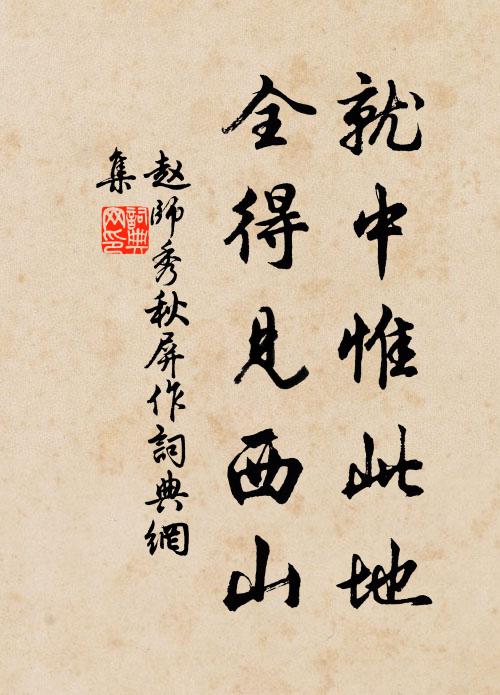 就中惟此地
全得見西山
赵師秀秋屏作詞典網
集
詞典網印